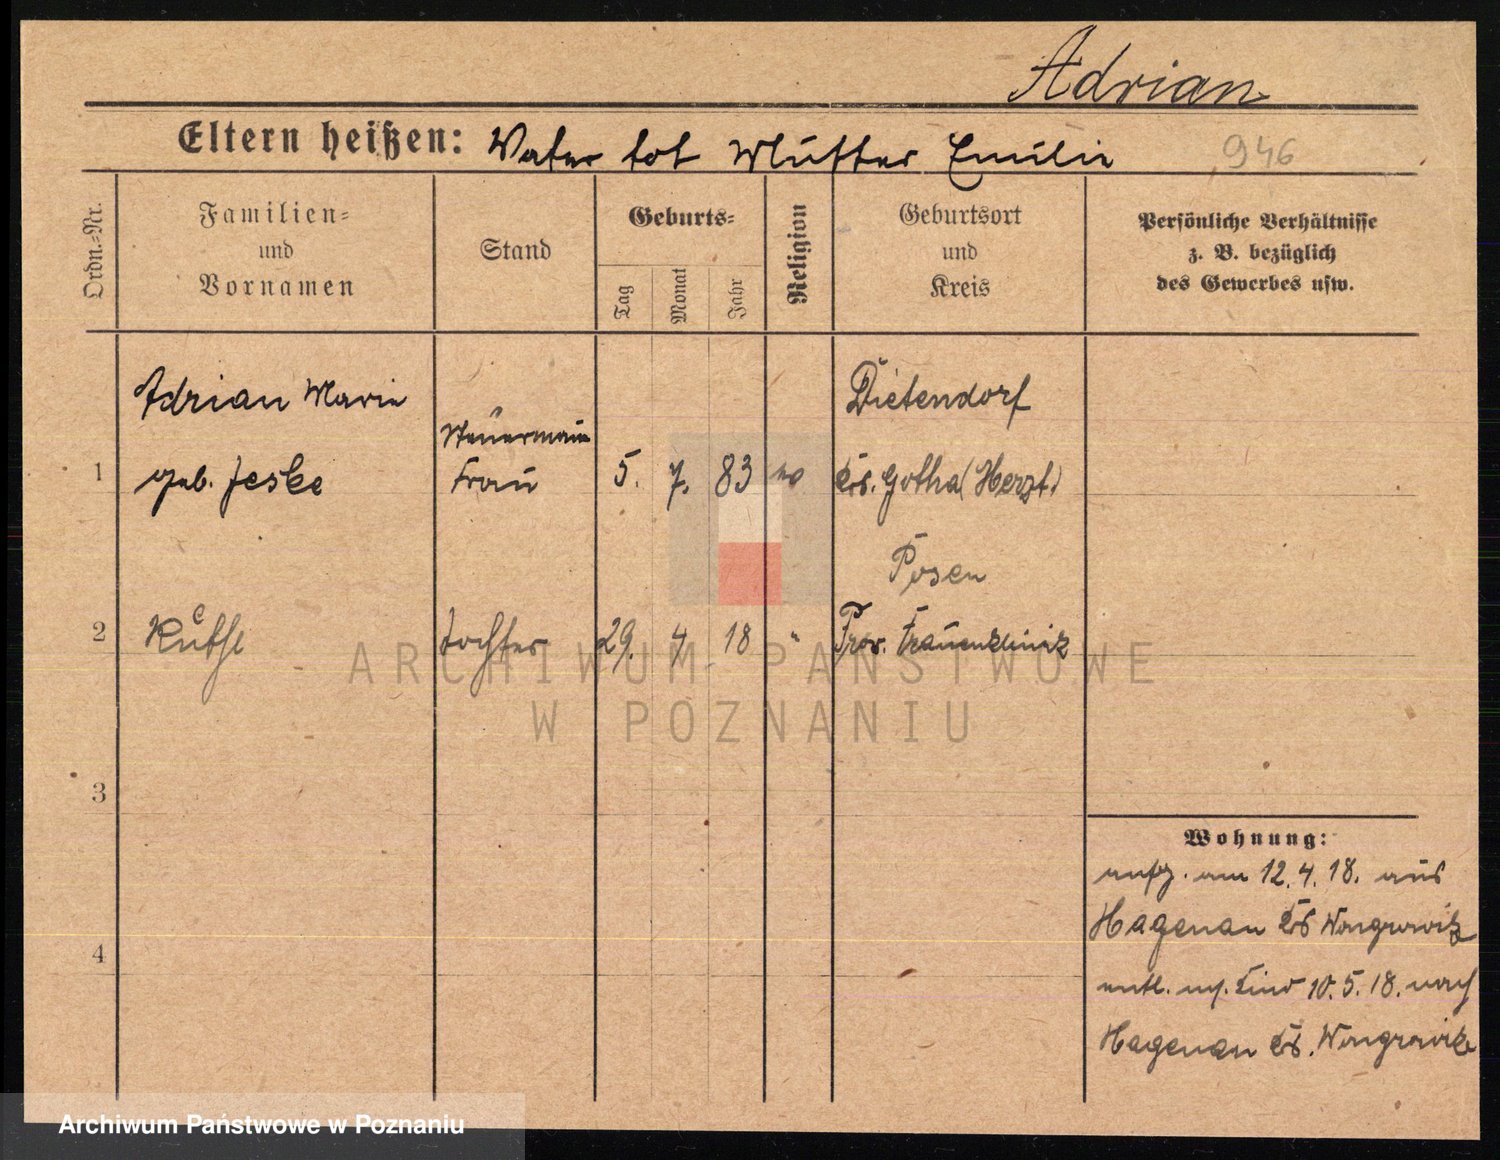 Adrian
Eltern heißen: Vater tot Mutter Emilie
946
Ordn.=Nr.
Familien=
und
Vornamen
Stand
Geburts=
Tag
Monat
Jahr
Religion
Geburtsort
und
Kreis
Persönliche Verhältnisse
z. B. bezüglich
des Gewerbes usw.
Adrian Marie
Dietendorf
1 geb. Jeske
Frau
5. 7. 83 ev
Krs. Gotha (Herzt.)
Posen
2
Tochter 29. 4. 18 "
Prov. Frauenklinik
3
Wohnung:
aufg. am 12.4.18. aus
Hagenau Krs Wongrowitz
4
entl. m. Kind 10.5.18. nach
Hagenau Krs. Wongrowitz
ARCHIWUM PAŃSTWOWE
W POZNANIU
Archiwum Państwowe w Poznaniu